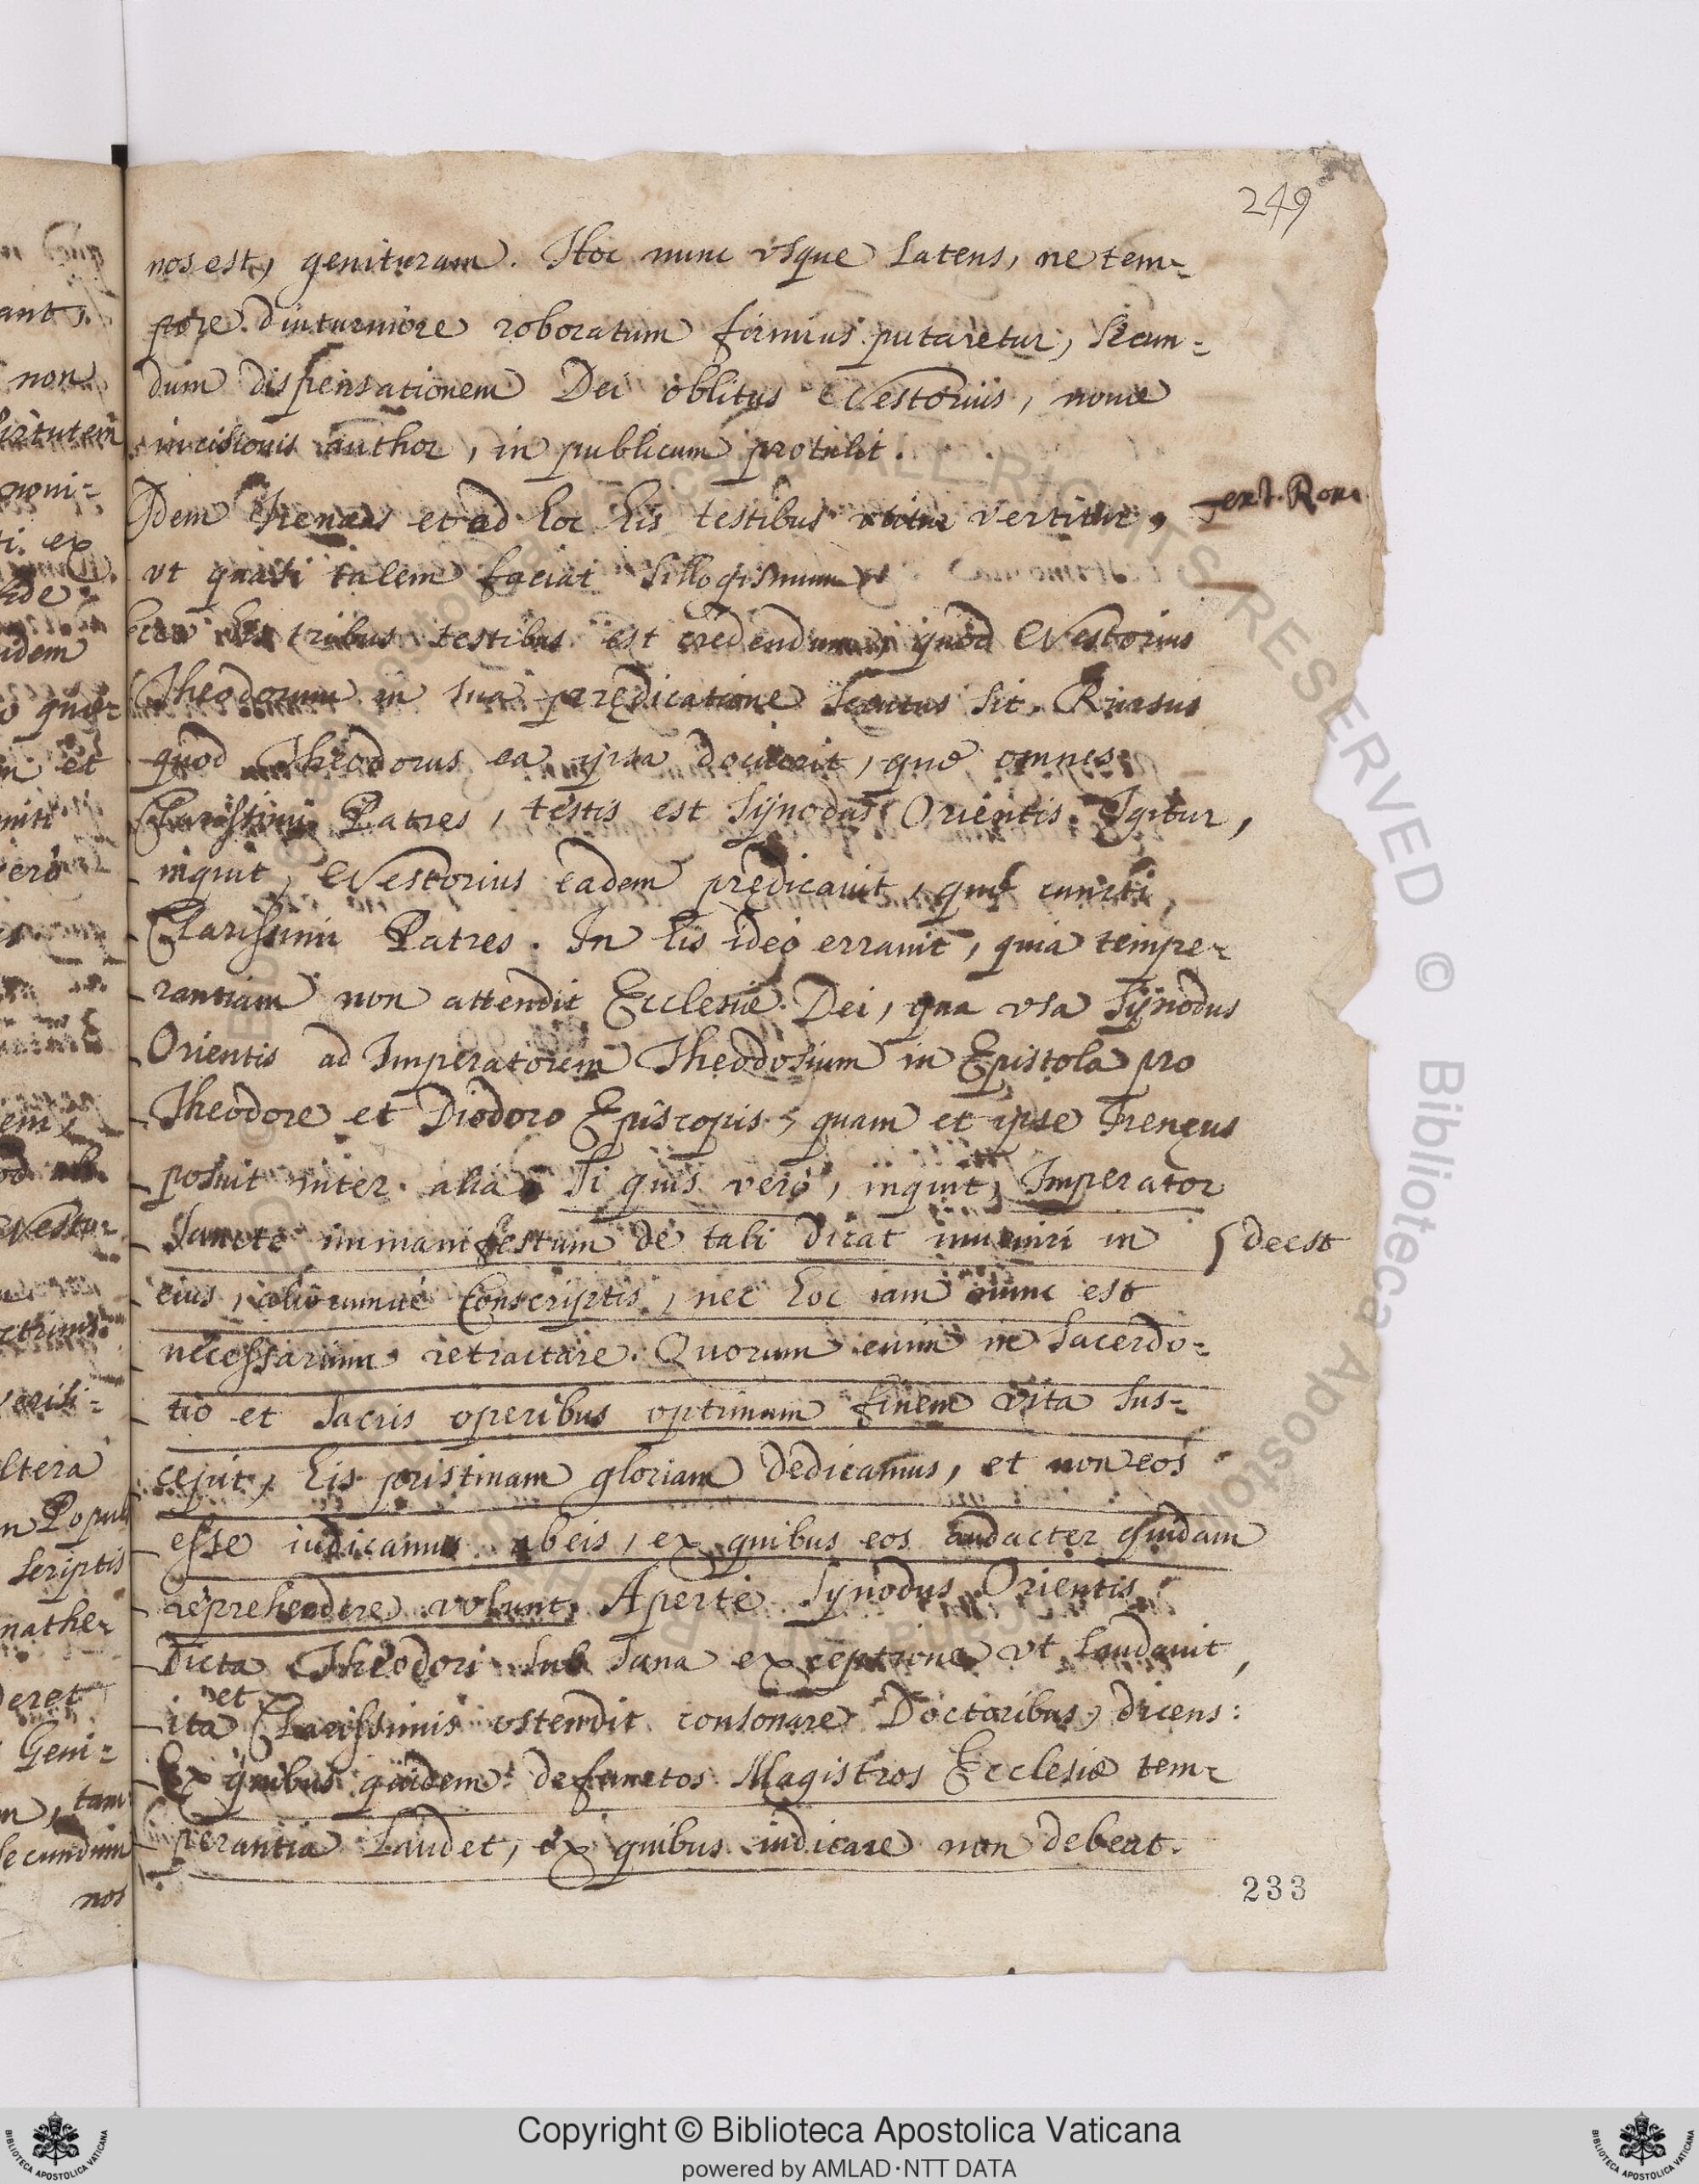 249
nos est, genituram. Hoc nunc vsque latens, ne tem=
pore diuturniore roboratum firmius putaretur, secun=
dum dispensationem Dei oblitus Nestorius, noue
incisionis author, in publicum protulit.
Idem Ireneus et ad hoc his testibus vertitur,
vt quasi talem faciat sillogismum
his tribus testibus est credendum, quod Nestorius
Theodorum in sua prędicatione secutus sit. Rursus
quod Theodorus ea ipsa docuerit, que omnes
Clarissimi Patres, testis est Synodus Orientis. Igitur,
inquit, Nestorius eadem prędicauit, quę cuncti
Clarissimi Patres. In his ideo errauit, quia tempe-
rantiam non attendit Ecclesiæ Dei, qua vsa Synodus
Orientis ad Imperatorem Theodosium in Epistola pro
Theodore et Diodoro Episcopis, quam et ipse Irenęus
posuit inter alia. Si quis vero, inquit, Imperator
Sancte immanifestum de tali dicat inueniri in
deest
eius, aliorumue Conscriptis, nec hoc iam nunc est
necessarium retractare. Quorum enim in Sacerdo=
tio et Sacris operibus optimum finem vita sus=
cepit, his pristinam gloriam dedicamus, et non eos
esse iudicamus ab eis, ex quibus eos audacter quidam
reprehendere volunt. Aperte Synodus Orientis
Dicta Theodori sub sana exceptione vt laudauit,
ita et Clarissimis ostendit consonare Doctoribus, dicens:
Ex quibus quidem defunctos Magistros Ecclesiæ tem-
perantia laudet, ex quibus iudicare non debeat.
233
Copyright © Biblioteca Apostolica Vaticana
powered by AMLAD·NTT DATA